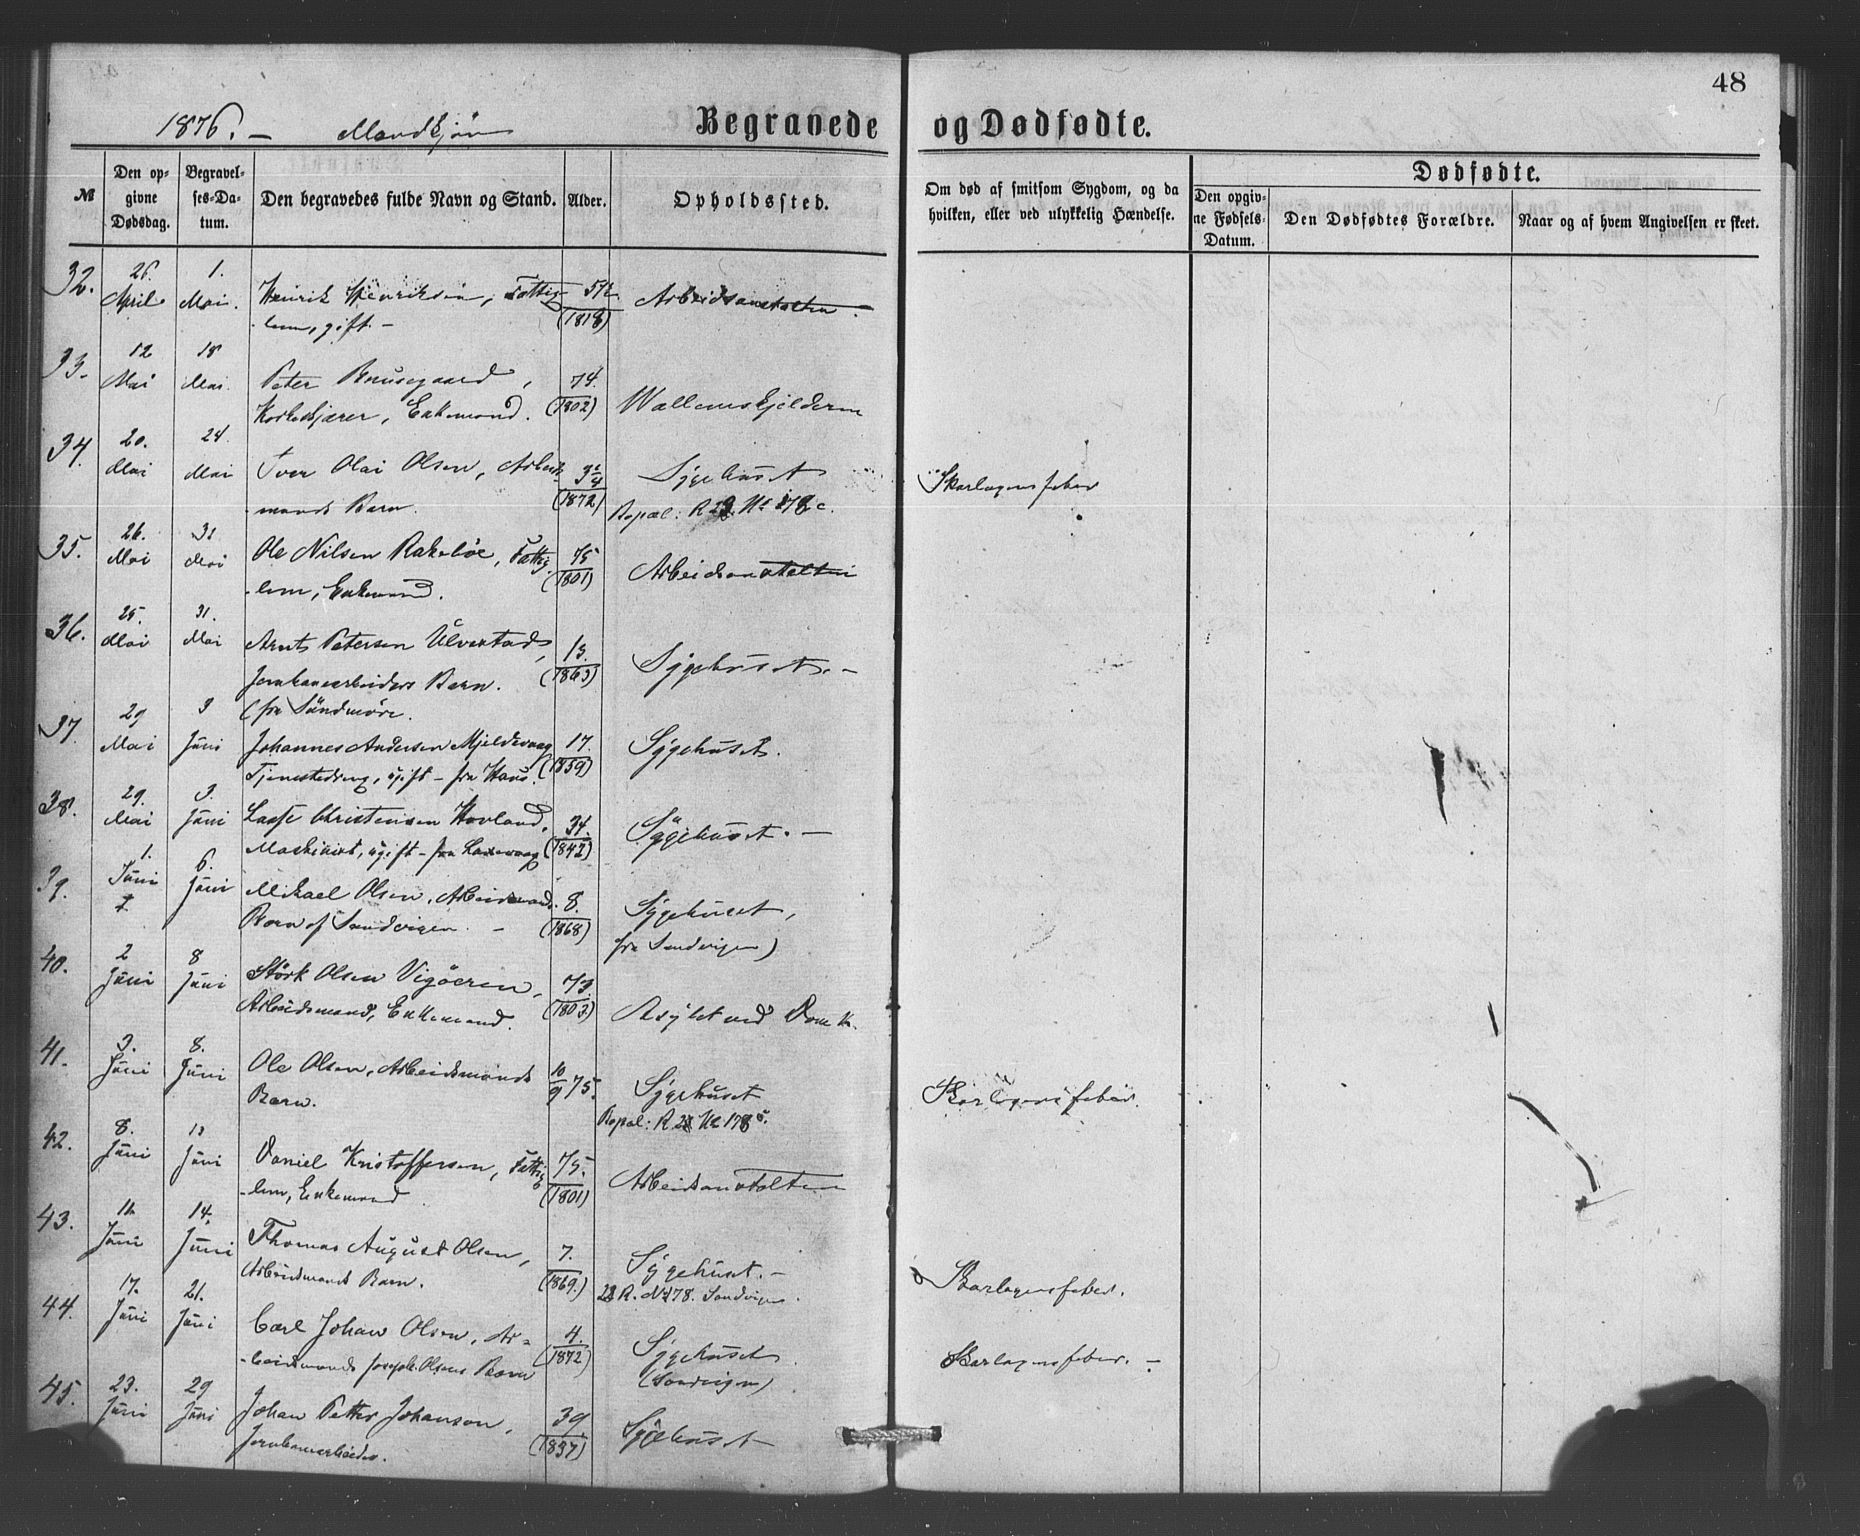 48
1876. – Mandkjøn
Begravede og Dødfødte.
№
Den opgivne Dødsdag.
Begravelses-Datum.
Den begravedes fulde Navn og Stand.
Alder.
Opholdssted.
Om død af smitsom Sygdom, og da hvilken, eller ved ulykkelig Hændelse.
Dødfødte.
Den opgivne Fødsels-Datum.
Den Dødfødtes Forældre.
Naar og af hvem Angivelsen er skeet.
32. 26. April 1. Mai. Henrik Henriksen, Fattig- Arbeidsanstalten
lem, gift. – (1818)
33. 12 Mai 18 Mai. Peter Brusegaard, 74.
Enkemand. (1802) Wallemskjelderen
34. 20. Mai 24 Mai Iver Olai Olsen, Arbeids- 3¾ Sygehuset Skarlagensfeber
mands Barn. (1872) Bopæl: R 22. No 178 c.
35. 26. Mai 31 Mai Ole Nilsen Rakeløe, Fattig- 75 Arbeidsanstalten
lem, Enkemand. (1801)
36. 25. Mai 31. Mai Arnt Petersen Ulvestad, 13. Sygehuset. –
Jernbanearbeiders Barn. (1863)
(fra Søndmøre.
37. 29 Mai 3 Juni Johannes Andersen Mjeldevaag 17. Sygehuset.
Tjenestedreng, ugift – fra Haus. (1859)
38. 29. Mai 3. Juni Lasse Christensen Hovland, 34. Sygehuset. –
Maskinist, ugift – fra Laxevaag (1842)
39. 1. Juni 6. Juni Mikael Olsen, Arbeidsmands 8. Sygehuset,
Barn af Sandvigen. – (1868) fra Sandvigen)
40. 2 Juni 8 Juni Størk Olsen Vigøeren, 73.
Arbeidsmand, Enkemand. (1803) Asylet ved Dom k.
41. 3. Juni 8. Juni Ole Olsen, Arbeidsmands 10/9 75. Sygehuset Skarlagensfeber.
Barn. Bopæl: R 22 No 178 c.
42. 8. Juni 12 Juni Daniel Kristoffersen, Fattig- 75. Arbeidsanstalten
lem, Enkemand (1801)
43. 11. Juni 14. Juni Thomas August Olsen, 7. Sygehuset. – Skarlagensfeber.
Arbeidsmands Barn. (1869.) 22 R. No 178. Sandvigen.
44. 17. Juni 21. Juni Carl Johan Olsen, Ar- 4. Sygehuset Skarlagensfeber. –
beidsmands Joseph Olsens Barn (1872) (Sandvigen)
45. 23. Juni 29 Juni Johan Petter Johanson, 39 Sygehuset
Jernbanearbeider. (1837)
8